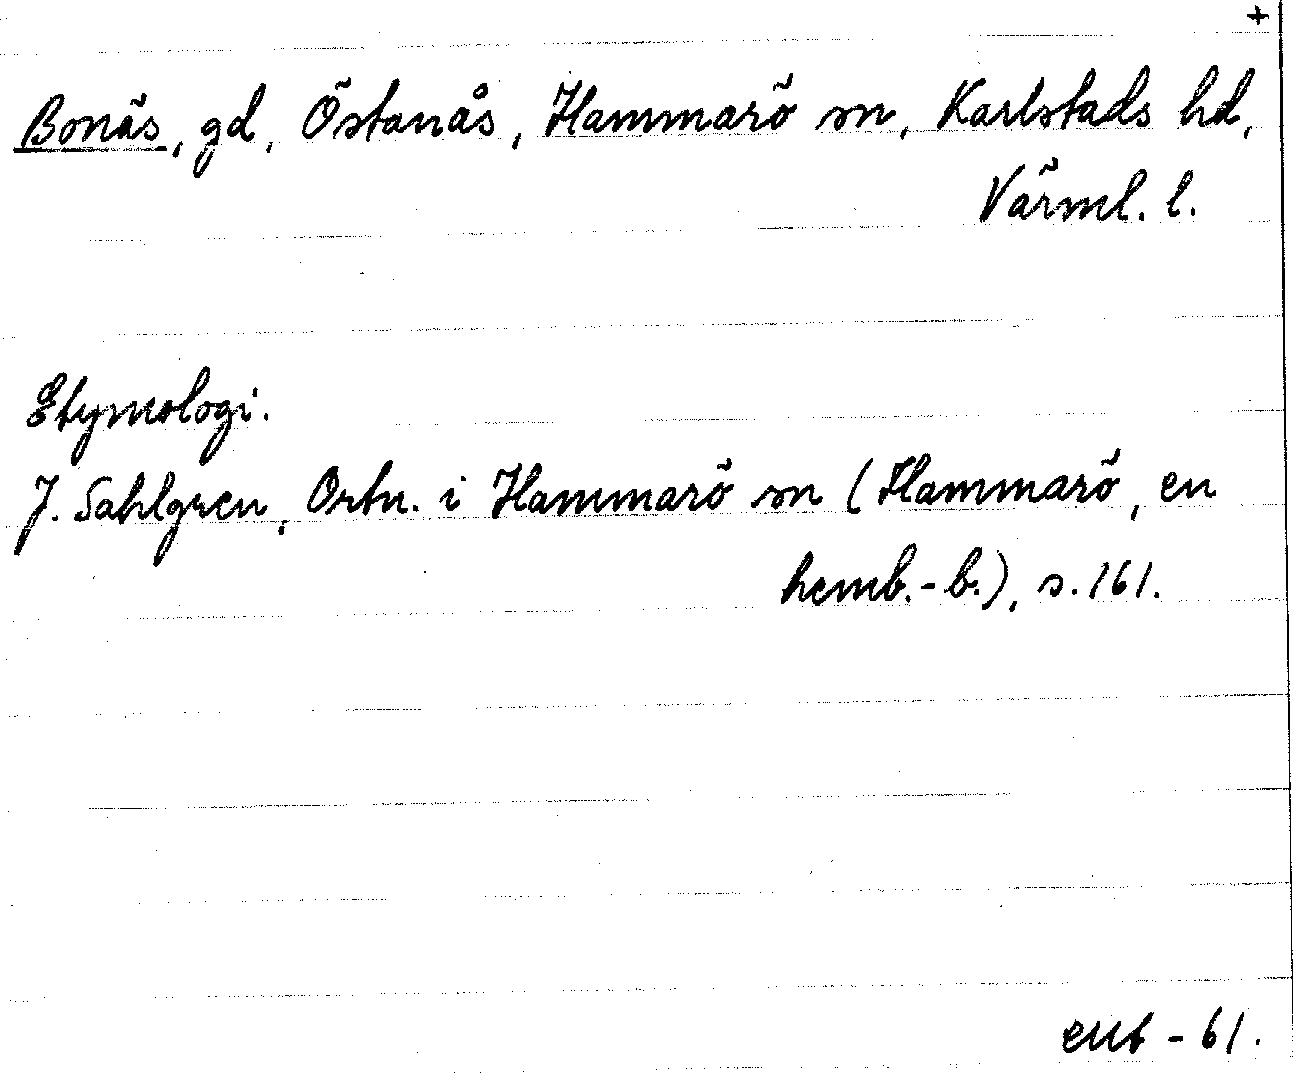 +
Bonäs, gd, Östanås, Hammarö sn, Karlstads hd,
Värml. l.
Etymologi.
J. Sahlgren, Ortn. i Hammarö sn (Hammarö, en
hemb.-b.), s. 161.
-61.